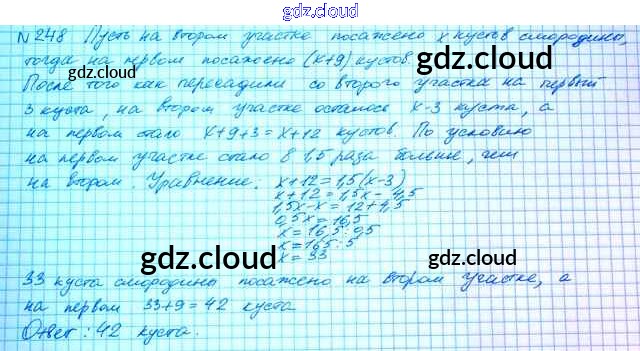 gdz.cloud
N 248 Пусть на втором участке посажено x кустов смородины,
тогда на первом посажено (x+9) кустов.
gdz.cloud gdz.cloud
После того как пересадили со второго участка на первый
3 куста, на втором участке осталось x-3 куста, а
на первом стало x+9+3=x+12 кустов. По условию
на первом участке стало в 1,5 раза больше, чем
на втором. Уравнение: x+12=1,5(x-3)
x+12=1,5x-4,5
1,5x-x=12+4,5
0,5x=16,5
x=16,5:0,5
gdz.cloud
x=165:5
x=33
33 куста смородины посажено на втором участке, а
gdz.cloud gdz.cloud
на первом 33+9=42 куста
Ответ: 42 куста.
gdz.cloud